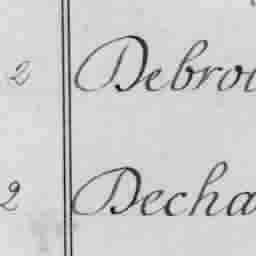 2 Debroi
2 Decha